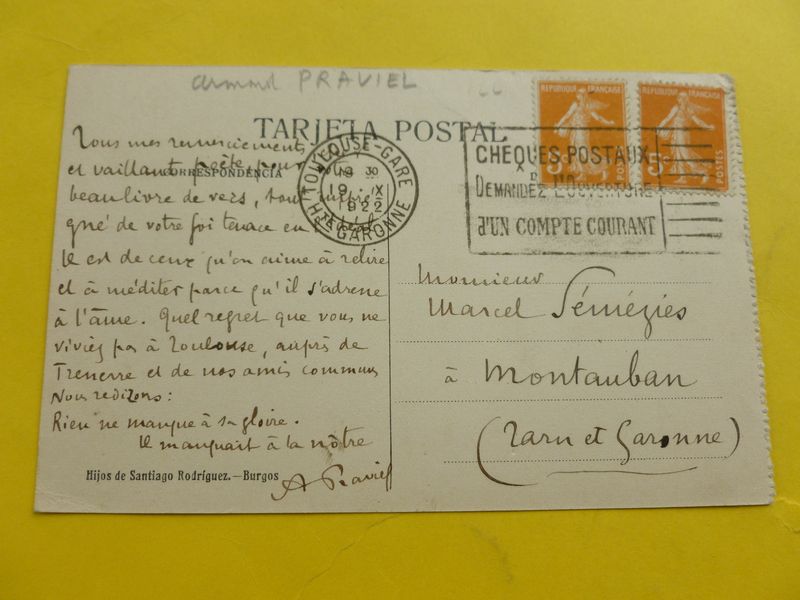 armand PRAVIEL
TARJETA POSTAL
CORRESPONDENCIA
Tous mes remerciements,
et vaillant poète, pour votre
beau livre de vers, tout
gné de votre foi tenace en
Il est de ceux qu'on aime à relire
et à méditer parce qu'il s'adresse
à l'âme. Quel regret que vous ne
viviez pas à Toulouse, auprès de
et de nos amis communs
Nous redirons :
Rien ne manque à sa gloire.
Il manquait à la nôtre
A Praviel
Hijos de Santiago Rodríguez.—Burgos
TOULOUSE-GARE
19 30
19 IX
1922
Hte GARONNE
CHEQUES POSTAUX
DEMANDEZ L'OUVERTURE
D'UN COMPTE COURANT
REPUBLIQUE FRANÇAISE
5c
POSTES
REPUBLIQUE FRANÇAISE
5c
POSTES
Monsieur
Marcel Sémézies
à Montauban
(Tarn et Garonne)